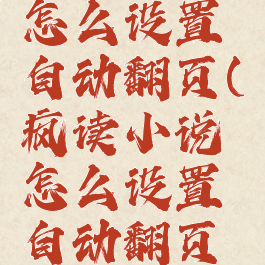 怎么设置
自动翻页(
疯读小说
怎么设置
自动翻页